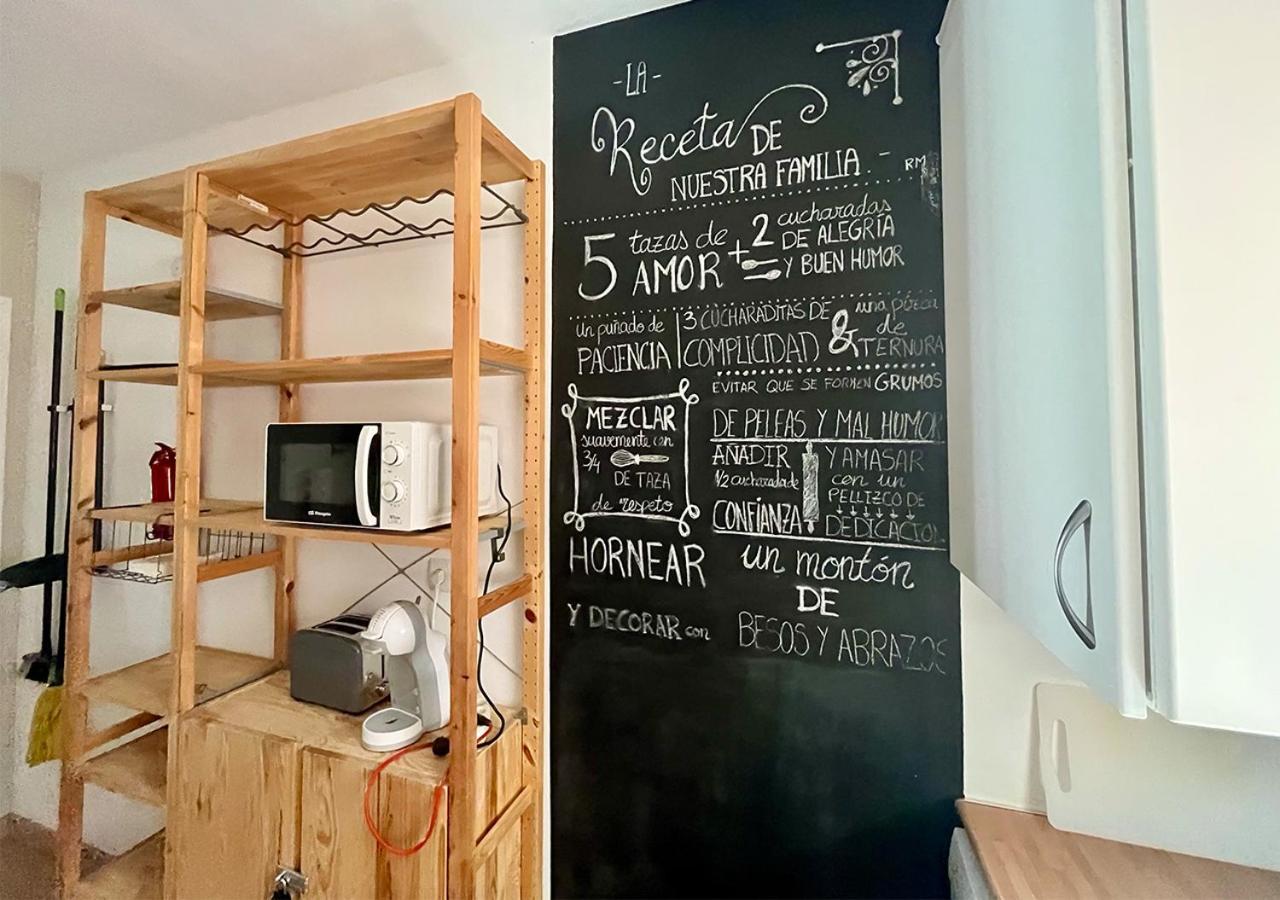 -LA-
Receta DE
NUESTRA FAMILIA.
RM
5 tazas de AMOR
+2 cucharadas
DE ALEGRÍA
Y BUEN HUMOR
un puñado de
PACIENCIA
3 CUCHARADITAS DE
COMPLICIDAD
&
una pizca
de
TERNURA
EVITAR QUE SE FORMEN GRUMOS
DE PELEAS Y MAL HUMOR
MEZCLAR
suavemente con
3/4
DE TAZA
de respeto
AÑADIR
1/2 cucharada de
CONFÍANZA
Y AMASAR
con un
PELLIZCO DE
DEDICACION
HORNEAR
Y DECORAR con
un montón
DE
BESOS Y ABRAZOS